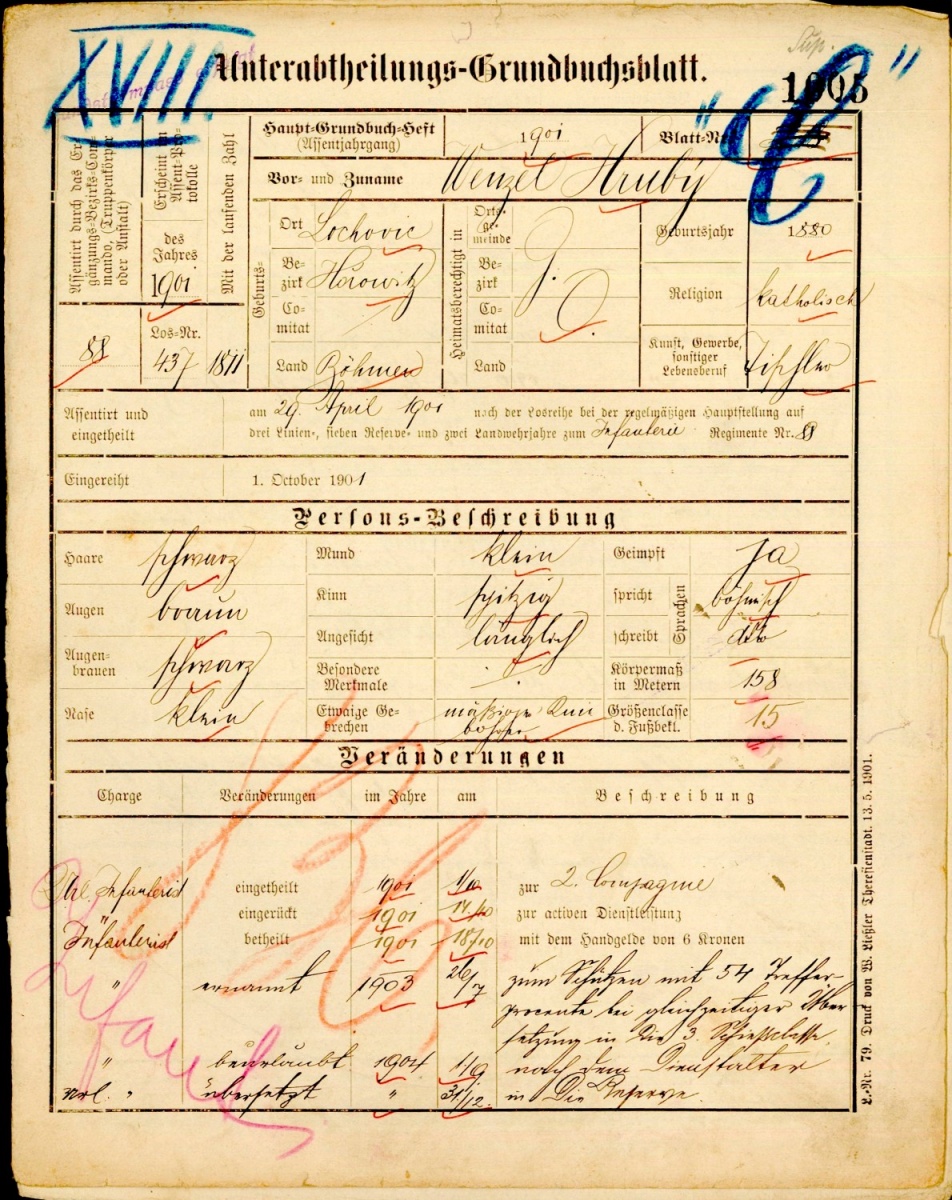 XVIII.
Unterabtheilungs-Grundbuchsblatt.
1905
Assentirt durch das Er-
gänzungs-Bezirks-Com-
mando, (Truppenkörper
oder Anstalt)
88
Erscheint im
Assent-Pro-
tokolle
des
Jahres
1901
Los-Nr.
437
Mit der laufenden Zahl
1811
Haupt-Grundbuch-Heft
(Assentjahrgang)
1901
Blatt-Nr.
Vor- und Zuname Wenzel Hruby
Geburts-
Ort Lochovic
Be-
zirk Hořowitz
Co-
mitat
Land Böhmen
Heimatsberechtigt in
Orts-
ge-
meinde
Be-
zirk
Co-
mitat
Land
G. O.
Geburtsjahr 1880
Religion katholisch
Kunst, Gewerbe,
sonstiger
Lebensberuf Tischler
Assentirt und
eingetheilt
am 29. April 1901 nach der Losreihe bei der regelmäßigen Hauptstellung auf
drei Linien-, sieben Reserve- und zwei Landwehrjahre zum Infanterie Regimente Nr. 88
Eingereiht 1. October 1901
Persons-Beschreibung
Haare schwarz Mund klein Geimpft Ja
Augen braun Kinn spitzig spricht Sprachen böhmisch
Angesicht länglich schreibt dto
Augen-
brauen schwarz Besondere
Merkmale Körpermaß
in Metern 158
Nase klein Etwaige Ge-
brechen mäßige Knie
bohrer Größenclasse
d. Fußbekl. 15
Veränderungen
Charge Veränderungen im Jahre am Beschreibung
Url. Infanterist eingetheilt 1901 1/10 zur 2. Compagnie
" eingerückt 1901 14/10 zur activen Dienstleistung
Infanterist betheilt 1901 18/10 mit dem Handgelde von 6 Kronen
" ernannt 1903 26/7 zum Schützen mit 54 Treffer-
procente bei gleichzeitiger Über
setzung in die 3. Schießclasse.
" beurlaubt 1904 1/9 nach dem Dienstalter
Url. " übersetzt " 31/12. in die Reserve.
L.-Nr. 79. Druck von W. Ließler Theresienstadt. 13. 5. 1901.